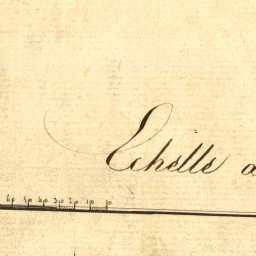 Echelle
60 50 40 30 20 10 0